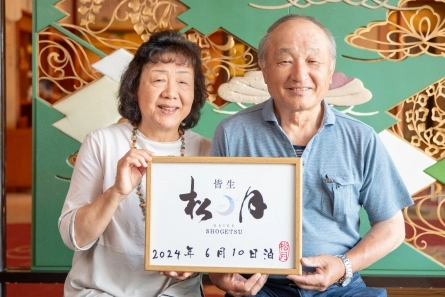 皆生
松月
KAIKE
SHOGETSU
2024年 6月10日泊